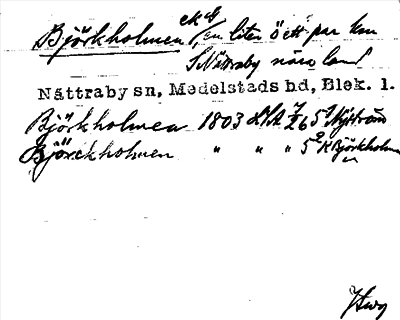 Björkholmen, ek af /en liten ö ett par km
S Nättraby nära land
Nättraby sn, Medelstads hd, Blek. l.
Björkholmen 1803 LSA 7/26 5² Nyström
Björckholmen " " " 5² K Björkholm